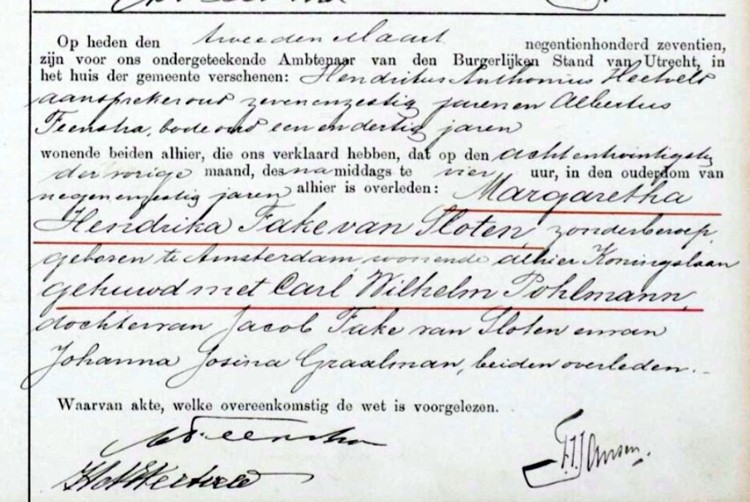 Op heden den tweeden Maart negentienhonderd zeventien,
zijn voor ons ondergeteekende Ambtenaar van den Burgerlijken Stand van Utrecht, in
het huis der gemeente verschenen: Hendrikus Anthonius
aanspreker oud zevenenzestig jaren en Albertus
Feenstra, bode oud een en dertig jaren
wonende beiden alhier, die ons verklaard hebben, dat op den achtentwintigste
der vorige maand, des namiddags te vier uur, in den ouderdom van
negenenzestig jaren alhier is overleden: Margaretha
Hendrika Fake van Sloten, zonder beroep,
geboren te Amsterdam, wonende alhier Koningslaan
gehuwd met Carl Wilhelm Pohlmann,
dochter van Jacob Fake van Sloten en van
Johanna Josina Graalman, beiden overleden.
Waarvan akte, welke overeenkomstig de wet is voorgelezen.
Feenstra
F.J. Jansen.